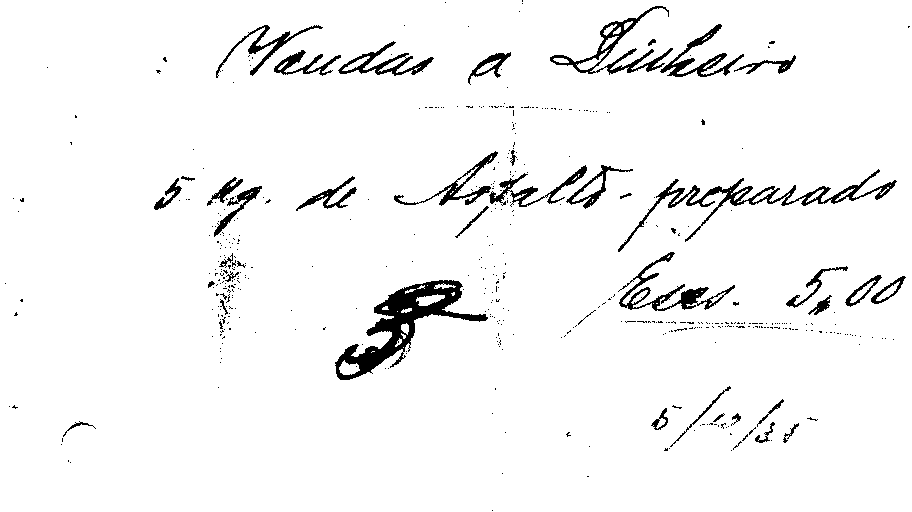 Vendas a Dinheiro
5 Kg. de Asfalto - preparado
Escs. 5,00
5/10/35